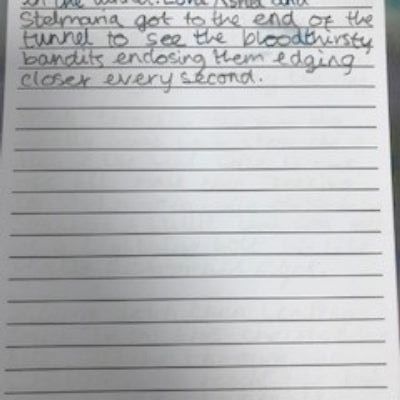 in the         Lord Asriel and
Stelmaria got to the end of the
tunnel to see the bloodthirsty
bandits enclosing them edging
closer every second.